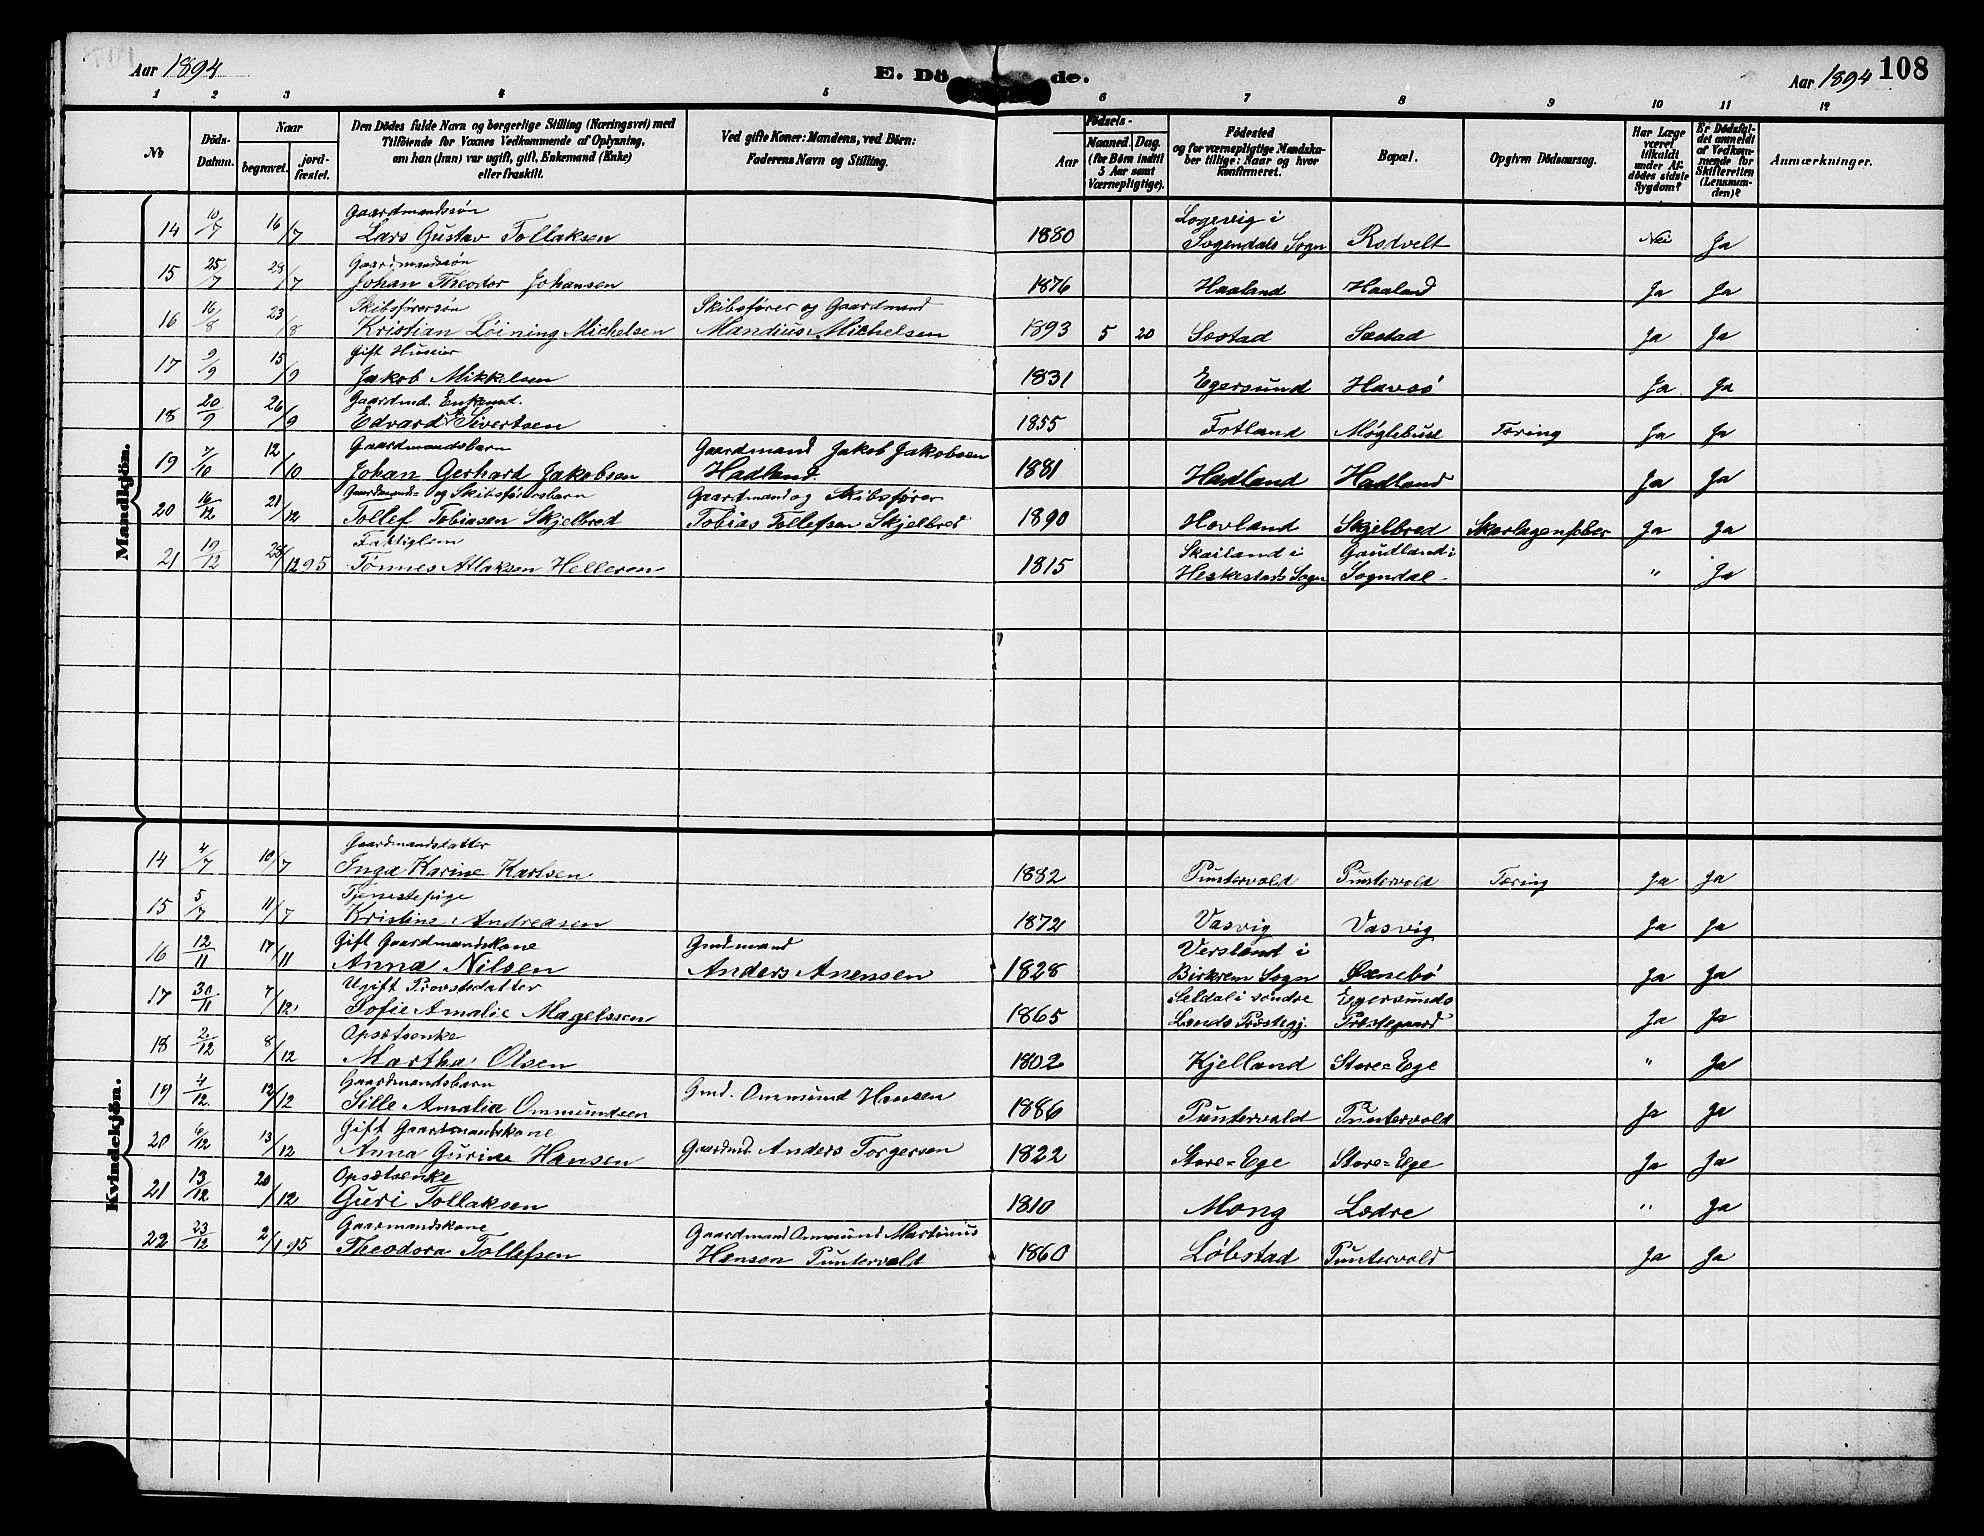 Aar 1894
E. Dö de.
Aar 1894 108
1 2 3 4 5 6 7 8 9 10 11 12
No
Döds-Datum.
Naar
begravet.
jord-fæstet.
Den Dödes fulde Navn og borgerlige Stilling (Næringsvei) med
Tilföiende for Voxnes Vedkommende af Oplysning,
om han (hun) var ugift, gift, Enkemand (Enke)
eller fraskilt.
Ved gifte Koner: Mandens, ved Börn:
Faderens Navn og Stilling.
Födsels-
Aar
Maaned. Dag.
(for Börn indtil
5 Aar samt
Værnepligtige).
Födested
og for værnepligtige Mandska-
ber tillige: Naar og hvor
konfirmeret.
Bopæl.
Opgiven Dödsaarsag.
Har Læge
været
tilkaldt
under Af-
dödes sidste
Sygdom?
Er Dödsfal-
det anmeldt
af Vedkom-
mende for
Skifteretten
(Lensman-
den)?
Anmærkninger.
Mandkjön.
14 10/7 16/7 Gaardmandssøn
Lars Gustav Tollaksen 1880 Logevig i
Sogendals Sogn Rodvelt Nei Ja
15 25/7 28/7 Gaardmandssøn
Johan Theodor Johansen 1876 Haaland Haaland Ja Ja
16 16/8 23/8 Skibsførersøn
Kristian Løining Michelsen Skibsfører og Gaardmand
Mandius Michelsen 1893 5 20 Sæstad Sæstad Ja Ja
17 9/9 15/9 Gift Huseier
Jakob Mikkelsen 1831 Egersund Havsø Ja Ja
18 20/9 26/9 Gaardmd. Enkemd.
Edvard Sivertsen 1855 Fotland Møglebust Tæring Ja Ja
19 7/10 12/10 Gaardmandsbarn
Johan Gerhard Jakobsen Gaardmand Jakob Jakobsen
Hadland 1881 Hadland Hadland Ja Ja
20 16/12 21/12 Gaardmands- og Skibsførersbarn
Tollef Tobiasen Skjelbred Gaardmand og Skibsfører
Tobias Tollefsen Skjelbred 1890 Hovland Skjelbred Skarlagensfeber Ja Ja
21 19/12 28/12 95 Fattiglem
Tønnes Atlaksen Helleren 1815 Skailand i
Heskestads Sogn Gaudland i
Sogndal " Ja
Kvindekjön.
14 4/7 10/7 Gaardmandsdatter
Inga Karine Karlsen 1882 Puntervold Puntervold Tæring Ja Ja
15 5/7 11/7 Tjenestepige
Kristine Andreasen 1872 Vasvig Vasvig Ja Ja
16 12/11 17/11 Gift Gaardmandskone
Anna Nilsen Gmdmand
Anders Anensen 1828 Versland i
Birkrem Sogn Øxnebø Ja Ja
17 30/11 7/12 Ugift Provstedatter
Sofie Amalie Magelssen 1865 Seldal i søndre
Lands Præstegj. Egersunds
Præstegaard Ja Ja
18 2/12 8/12 Opsætsenke
Martha Olsen 1802 Kjelland Store-Ege " Ja
19 4/12 12/12 Gaardmandsbarn
Sille Amalia Ommundsen Gmd. Ommund Hansen 1886 Puntervold Puntervold Ja Ja
20 6/12 13/12 Gift Gaardmandskone
Anna Gurine Hansen Gaardmd. Anders Torgersen 1822 Store-Ege Store-Ege Ja Ja
21 13/12 20/12 Opsætsenke
Guri Tollaksen 1810 Mong Lædre " Ja
22 23/12 2/1 95 Gaarmandskone
Theodora Tollefsen Gaardmand Ommund Martinius
Hansen Puntervold 1860 Løbstad Puntervold Ja Ja